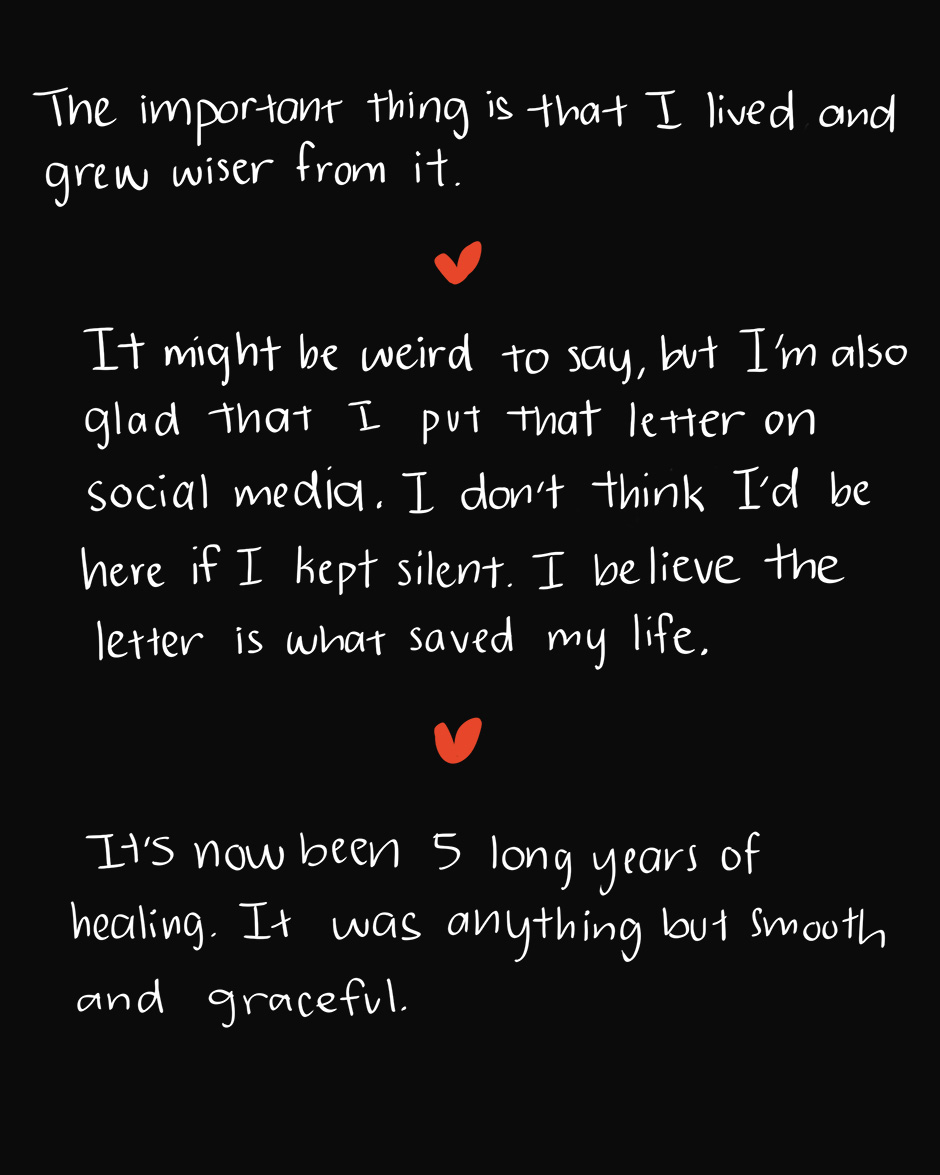 The important thing is that I lived and
grew wiser from it.
It might be weird to say, but I'm also
glad that I put that letter on
social media. I don't think I'd be
here if I kept silent. I believe the
letter is what saved my life.
It's now been 5 long years of
healing. It was anything but smooth
and graceful.